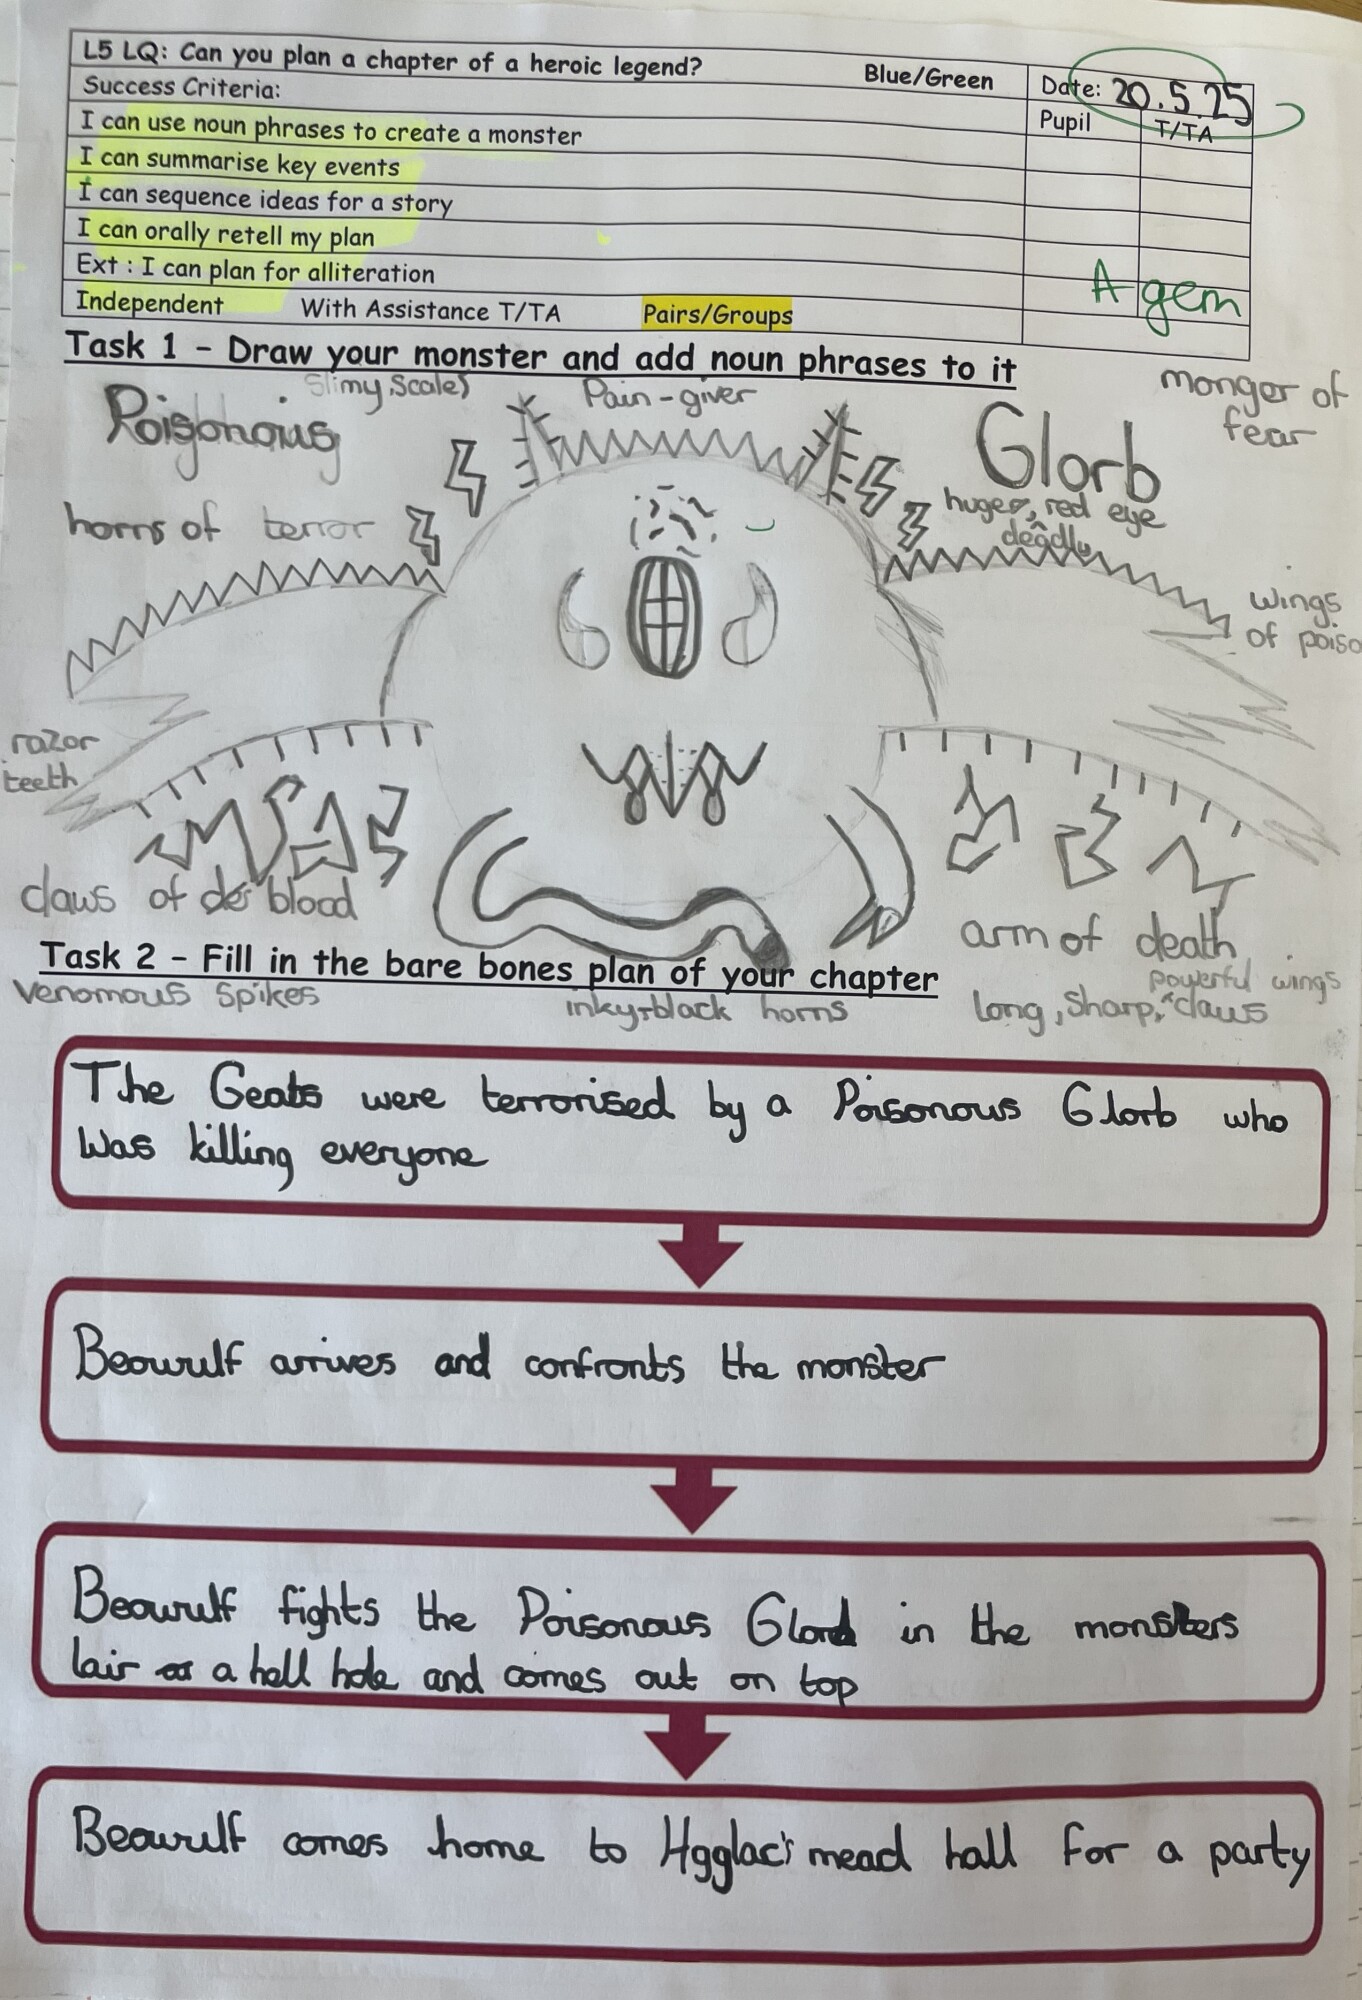 L5 LQ: Can you plan a chapter of a heroic legend? Blue/Green Date: 20.5.25
Success Criteria: Pupil T/TA
I can use noun phrases to create a monster
I can summarise key events
I can sequence ideas for a story
I can orally retell my plan
Ext : I can plan for alliteration
A gem
Independent With Assistance T/TA Pairs/Groups
Task 1 - Draw your monster and add noun phrases to it
Slimy, Scales
Pain-giver
monger of
fear
Poisonous
Glorb
horns of terror
huge, red eye
deadly
wings
of poiso
razor
teeth
claws of blood
arm of death
Task 2 - Fill in the bare bones plan of your chapter
venomous spikes
inky-black horns
powerful wings
long, sharp, claws
The Geats were terrorised by a Poisonous Glorb who
was killing everyone
Beowulf arrives and confronts the monster
Beowulf fights the Poisonous in the monsters
lair a hell hole and comes out on top
Beowulf comes home to Hgglac's mead hall for a party